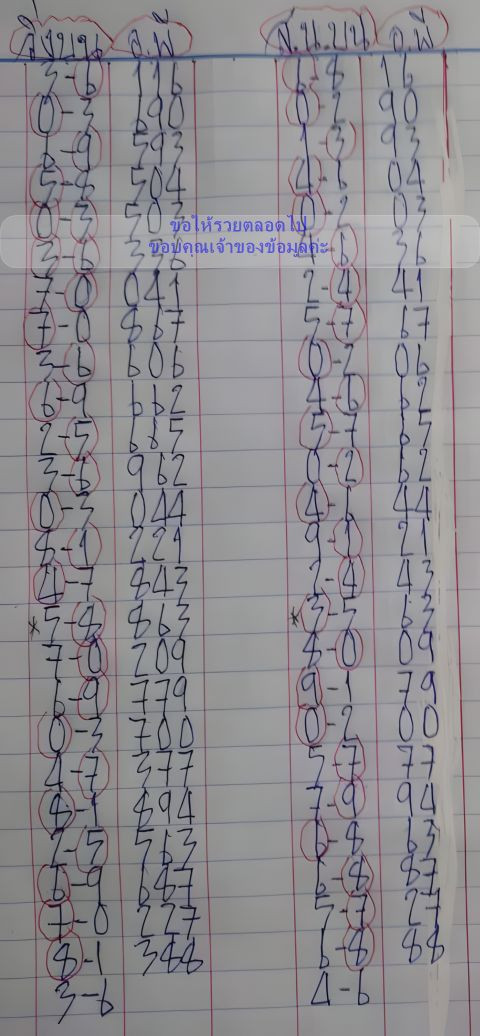 วิ่งบน อ.พี ส.น.บน อ.พี
3-6 116 6-8 16
0-3 690 0-2 90
6-9 593 1-3 93
5-8 504 4-6 04
0-3 503 0-2 03
ขอให้รวยตลอดไป
ขอบคุณเจ้าของข้อมูลค่ะ
3-6 336 4-6 36
7-0 041 2-4 41
7-0 867 5-7 67
3-6 606 0-2 06
6-9 662 4-6 62
2-5 665 5-7 65
3-6 962 0-2 62
0-3 044 4-6 44
8-1 221 9-1 21
4-7 843 2-4 43
*5-8 863 *3-5 63
7-0 209 8-0 09
6-9 779 9-1 79
0-3 700 0-2 00
4-7 377 5-7 77
8-1 894 7-9 94
2-5 563 6-8 63
6-9 687 6-8 87
7-0 227 5-7 27
8-1 388 6-8 88
3-6 4-6